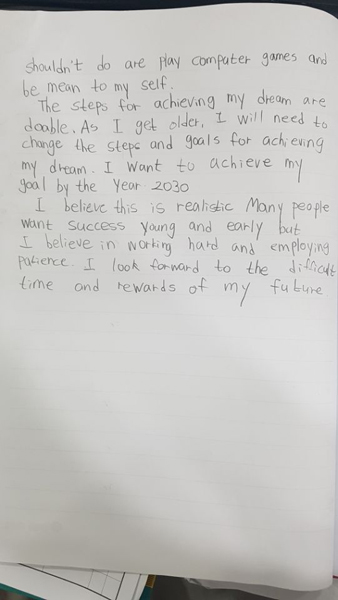 shouldn't do are play computer games and
be mean to my self.
The steps for achieving my dream are
doable. As I get older, I will need to
change the steps and goals for achieving
my dream. I want to achieve my
goal by the year 2030
I believe this is realistic Many people
want success young and early but
I believe in working hard and employing
patience. I look forward to the difficult
time and rewards of my future